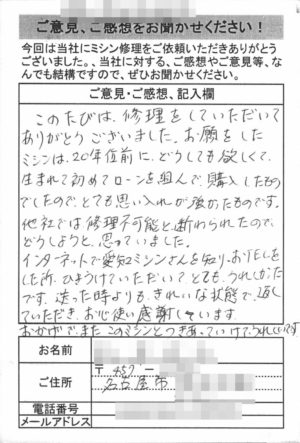 ご意見、ご感想をお聞かせください！
今回は当社にミシン修理をご依頼いただきありがとう
ございました。、当社に対する、ご感想やご意見等、な
んでも結構ですので、ぜひお聞かせください。
ご意見・ご感想、記入欄
このたびは、修理をしていただいて
ありがとうございました。お願をした
ミシンは、20年位前に、どうしても欲しくて、
生まれて初めてローンを組んで購入したもの
でしたので、とても思い入れが強かったものです。
他社では修理不可能と断わられたので、
どうしようと、思っていました。
インターネットで愛知ミシンさんを知り、おTELを
した所、ひきうけていただいて、とても、うれしかった
です。送った時よりも、きれいな状態で、返して
いただき、お心使い感謝しています。
おかげで、またこのミシンとつきあっていけてうれしいです。
お名前
ご住所
〒457-
名古屋市
電話番号
メールアドレス